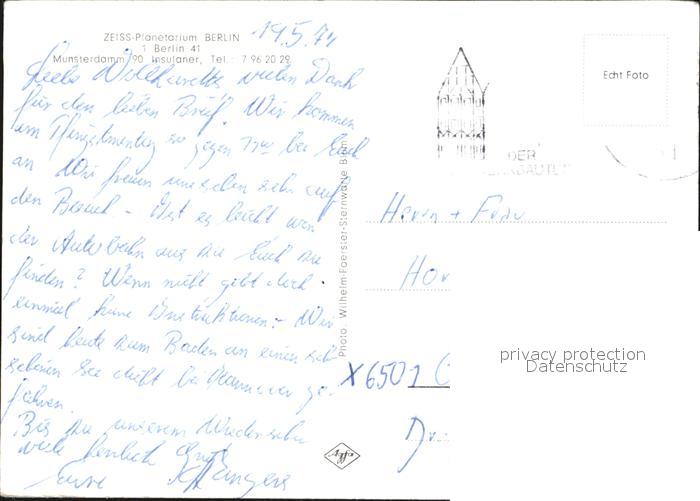 ZEISS-Planetarium BERLIN
1 Berlin 41
Munsterdamm 90 Insulaner, Tel.: 7 96 20 29
19.5.74
vielen Dank
für den lieben Brief. Wir kommen
am Pfingstmontag so gegen bei Euch
an Wir freuen uns schon sehr auf
den Besuch. - Ist es leicht von
der Autobahn aus zu Euch zu
finden? Wenn nicht gebt doch
einmal kurze Instruktionen. - Wir
sind heute zum Baden an einen sehr
schönen See dicht bei Hannover ge-
fahren.
Bis zu unserem Wiedersehn
viele herzlich Grüße
Eure
Photo Wilhelm-Foerster-Sternwarte Berlin
Echt Foto
DER
Herrn + Frau
Ho
X 6501
Dr.
Agfa
privacy protection
Datenschutz